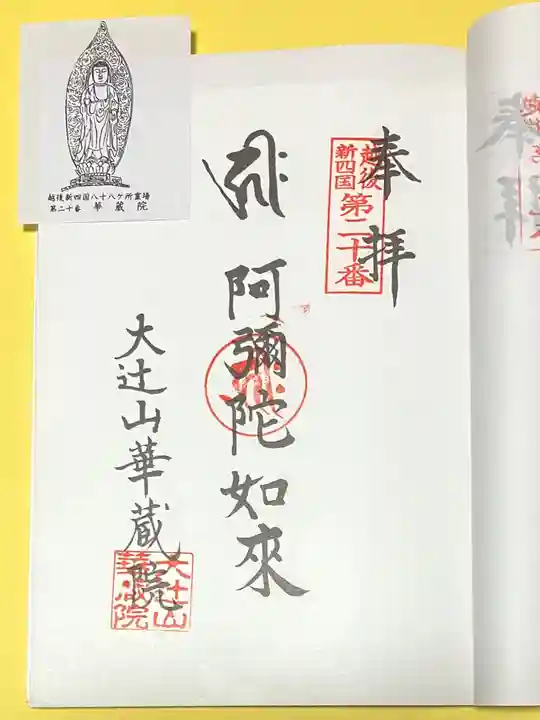 越後新四国八十八ケ所霊場
第二十番 華蔵院
奉拝
越後
新四国
第二十番
阿彌陀如來
大辻山華蔵院
大辻山
華蔵院